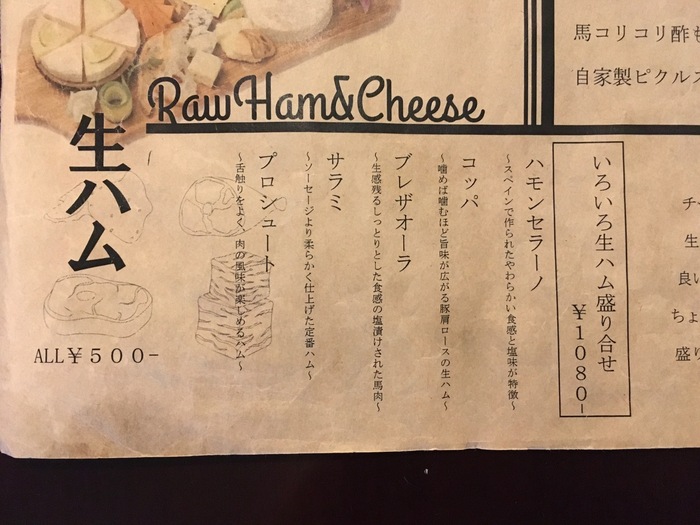 Raw Ham&Cheese
生ハム
ALL¥500-
いろいろ生ハム盛り合せ
¥1080-
ハモンセラーノ
～スペインで作られたやわらかい食感と塩味が特徴～
コッパ
～噛めば噛むほど旨味が広がる豚肩ロースの生ハム～
ブレザオーラ
～生感残るしっとりとした食感の塩漬けされた馬肉～
サラミ
～ソーセージより柔らかく仕上げた定番ハム～
プロシュート
～舌触りをよく、肉の風味が楽しめるハム～
馬コリコリ酢も
自家製ピクルス
チー
生
良い
ちょ
盛り